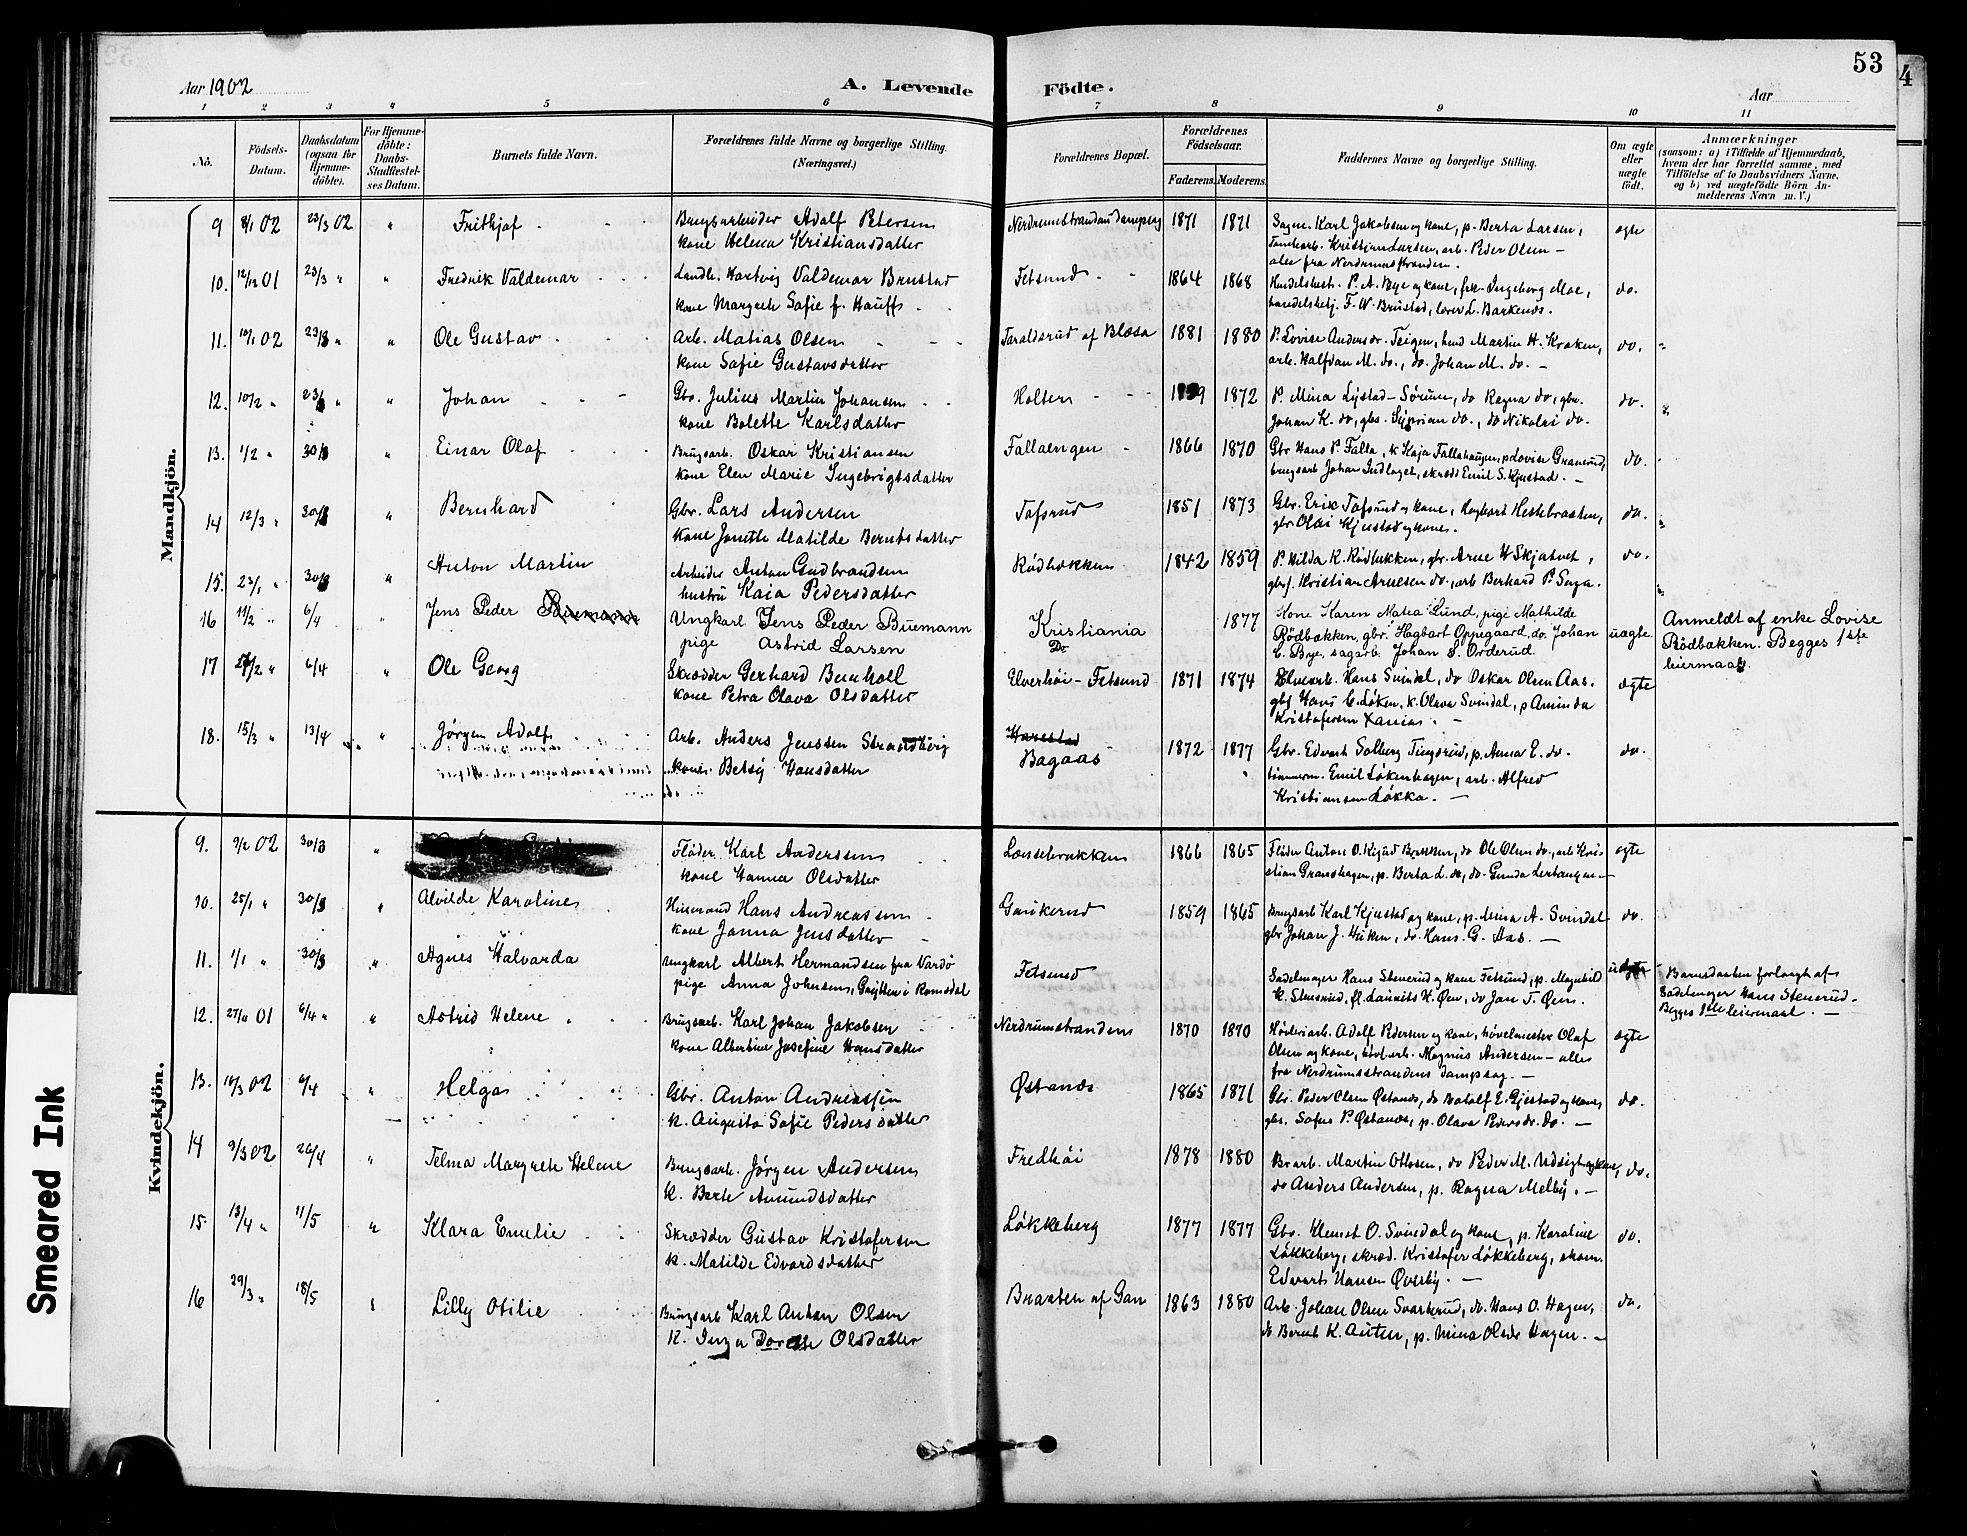 53
4
Aar 1902
A. Levende Födte.
Aar
1 2 3 4 5 6 7 8 9 10 11
No.
Födsels-Datum.
Daabsdatum (ogsaa for Hjemme-döbte).
For Hjemme-döbte: Daabs-Stadfæstel-ses Datum.
Barnets fulde Navn.
Forældrenes fulde Navne og borgerlige Stilling.
(Næringsvei.)
Forældrenes Bopæl.
Forældrenes Födselsaar.
Faderens. Moderens.
Faddernes Navne og borgerlige Stilling.
Om ægte eller uægte födt.
Anmærkninger
(saasom: a) i Tilfælde af Hjemmedaab, hvem der har forrettet samme, med Tilföielse af to Daabsvidners Navne, og b) ved uægtefödte Börn An-melderens Navn m. V.)
Mandkjön.
9 8/1 02 23/3 02 " Frithjof
Brugsarbeider Adolf Petersen
kone Helena Kristiansdatter
Nerdrumstrandens Dampsag 1871 1871
Karl Jakobsen og kone, p. Berta Larsen,
Tomtearb. Kristian Larsen, arb. Peder Olsen –
alle fra Nerdrumsstranden.
ægte
10. 12/12 01 23/3 " " Fredrik Valdemar
Landh. Hartvig Valdemar Brustad
kone Margrete Sofie f. Hauff
Fetsund 1864 1868
Handelsbest. P. A. Bye og kone, frk. Ingeborg Moe,
handelsbetj. F. W. Brustad, lærer L. Barkenæs.
do.
11. 10/1 02 23/3 " " Ole Gustav
Arb. Matias Olsen
kone Sofie Gustavsdatter
Taraldsrud af Blæsa 1881 1880
P. Lovise Andersdr. Teigen, Martin H. Kroken,
arb. Halfdan M. do., do. Johan M. do. –
do.
12. 10/2 " 23/3 " " Johan
Gbr. Julius Martin Johansen
kone Bolette Karlsdatter
Holter 1872
P. Mina Lystad – Sørum, do Ragna do, gbr.
Johan K. do, gbs. Syprian do., do Nikolai do.
do.
13. 1/2 " 30/3 " Einar Olaf
Brugsarb. Oskar Kristiansen
kone Elen Marie Ingebrigtsdatter
Fallaengen 1866 1870
Gbr Hans P. Falla, k Kaja Fallahaugen, p Lovise Granerud,
brugsarb Johan Indlaget, skræd Emil S. Kjustad. –
do.
14 12/3 " 30/3 " Bernhard
Gbr. Lars Andersen
kone Jonette Matilde Berntsdatter
Tofsrud 1851 1873
Gbr. Erik Tofsrud og kone, Hagbart Hestebraaten,
gbr Olai Kjustad og kone.
do.
15. 23/1 " 30/3 " Anton Martin
Arbeider Anton Gudbrandsen
hustru Kaia Pedersdatter
Rødbækken 1842 1859
P. Hilda K. Rødbækken, gbr. Arne H Skjatvet,
gbs. Kristian Arnesen do., arb Berhard P. Suga.
do.
16 11/2 " 6/4 " Jens Peder Buemann
Ungkarl Jens Peder Buemann
pige Astrid Larsen
Kristiania
Do
1877
Kone Karen Matea Lund, pige Mathilde
Rödbækken, gbr. Hagbart Oppegaard, do. Johan
C. Bye, sagarb. Johan S. Orderud.
uægte
Anmeldt af enke Lovise
Rödbakken. Begges 1ste
leiermaal
17 27/2 " 6/4 " Ole Georg
Skrædder Gerhard Bunholl
kone Petra Olava Olsdatter
Elverhøi – Fetsund 1871 1874
Elvearb. Hans Svindal, do Oskar Olsen Aas.
gbs Hans C. Løken, k. Olava Svindal, p Aminda
Kristofersen Xanias. –
ægte
18. 15/3 " 13/4 " Jørgen Adolf
Arb. Anders Jenssen Strandberg
kone Betsy Hansdatter
Harestad
Bagaas
1872 1877
Gbr. Edvart Solberg Tingsrud, p. Anna E. do.
tömmerm. Emil Løkenhagen, arb. Alfred
Kristiansen Løkka. –
do.
Kvindekjön.
9. 9/2 02 30/3 "
Fløder. Karl Anderssen
kone Hanna Olsdatter
Lensebrakken 1866 1865
Fløder Anton O. Brakken, do Ole Olsen do., arb. Kris-
tian Granshagen, p. Berta L. do, do. Gunda Lertangen –
ægte
10. 25/1 " 30/3 " Alvilde Karoline
Husmand Hans Andreassen
kone Janna Jensdatter
Gaukerud 1859 1865
Brugsarb Karl Kjustad og kone, p. Mina A. Svindal
gbr Johan J. Viken, do. Hans. G. Aas. –
do.
11. 1/1 " 30/3 " Agnes Halvarda
Ungkarl Albert Hermandsen fra Vardø
pige Anna Johnsen, Grytten i Romsdal
Fetsund
Sadelmager Hans Stenerud og kone Fetsund, p. Magnhild
K. Stensrud, fl. Laurits H. Øien, do Jan T. Øien.
uægte
Barnedaaben forlangt af
Sadelmager Hans Stenerud.
Begges 1ste leiermaal. –
12. 27/11 01 6/4 " " Astrid Helene
Brugsarb. Karl Johan Jakobsen
kone Albertine Josefine Hansdatter
Nerdrumstrandens 1870 1870
Høvleriarb. Adolf Pedersen og kone, høvelmester Olaf
Olsen og kone, høvl. arb. Magnus Andersen – alle
fra Nerdrumsstrandens dampsag. –
ægte
13. 10/3 02 6/4 " Helga
Gbr. Anton Andreassen
k. Augusta Sofie Pedersdatter
Østanes 1865 1871
Gbr. Peder Olsen Østanes, do Botolf E. Gjestad og kone,
gbs. Sofus P. Østanes, p. Olava Pedersdr. do. –
do.
14 9/3 02 20/4 " Telma Margrete Helene
Brugsarb. Jørgen Andersen
k. Berte Amundsdatter
Fredhøi 1878 1880
Br arb. Martin Ottosen, do Peder M. Udsigt og kone,
do Anders Andersen, p. Ragna Melby. –
do.
15. 13/4 " 11/5 " Klara Emelie
Skrædder Gustav Kristofersen
k. Matilde Edvardsdatter
Løkkeberg 1877 1877
Gbr. Klemet O. Svindal og kone, p. Karoline
Løkkeberg, skræd. Kristofer Løkkeberg, skom.
Edvart Hansen Øverby. –
do.
16 29/3 " 18/5 " Lilly Otilie
Brugsarb Karl Anton Olsen
k. Inga Dorette Olsdatter
Braaten af Gan 1863 1880
Arb. Johan Olsen Svarterud, do. Hans O. Hagen,
do Bernt K. Auten, p. Mina Olsdr Hagen. –
do.
Smeared Ink